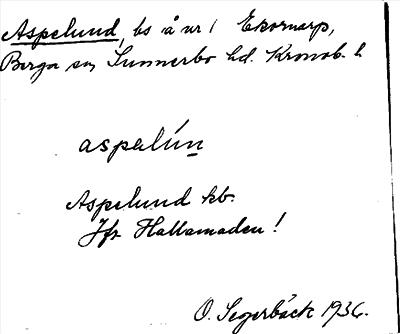 Aspelund, bs å nr 1 Ekornarp,
Berga sn, Sunnerbo hd. Kronob. l.
aspalún
Aspelund kb.
Jfr Hallamaden!
O. Segerbäck 1936.